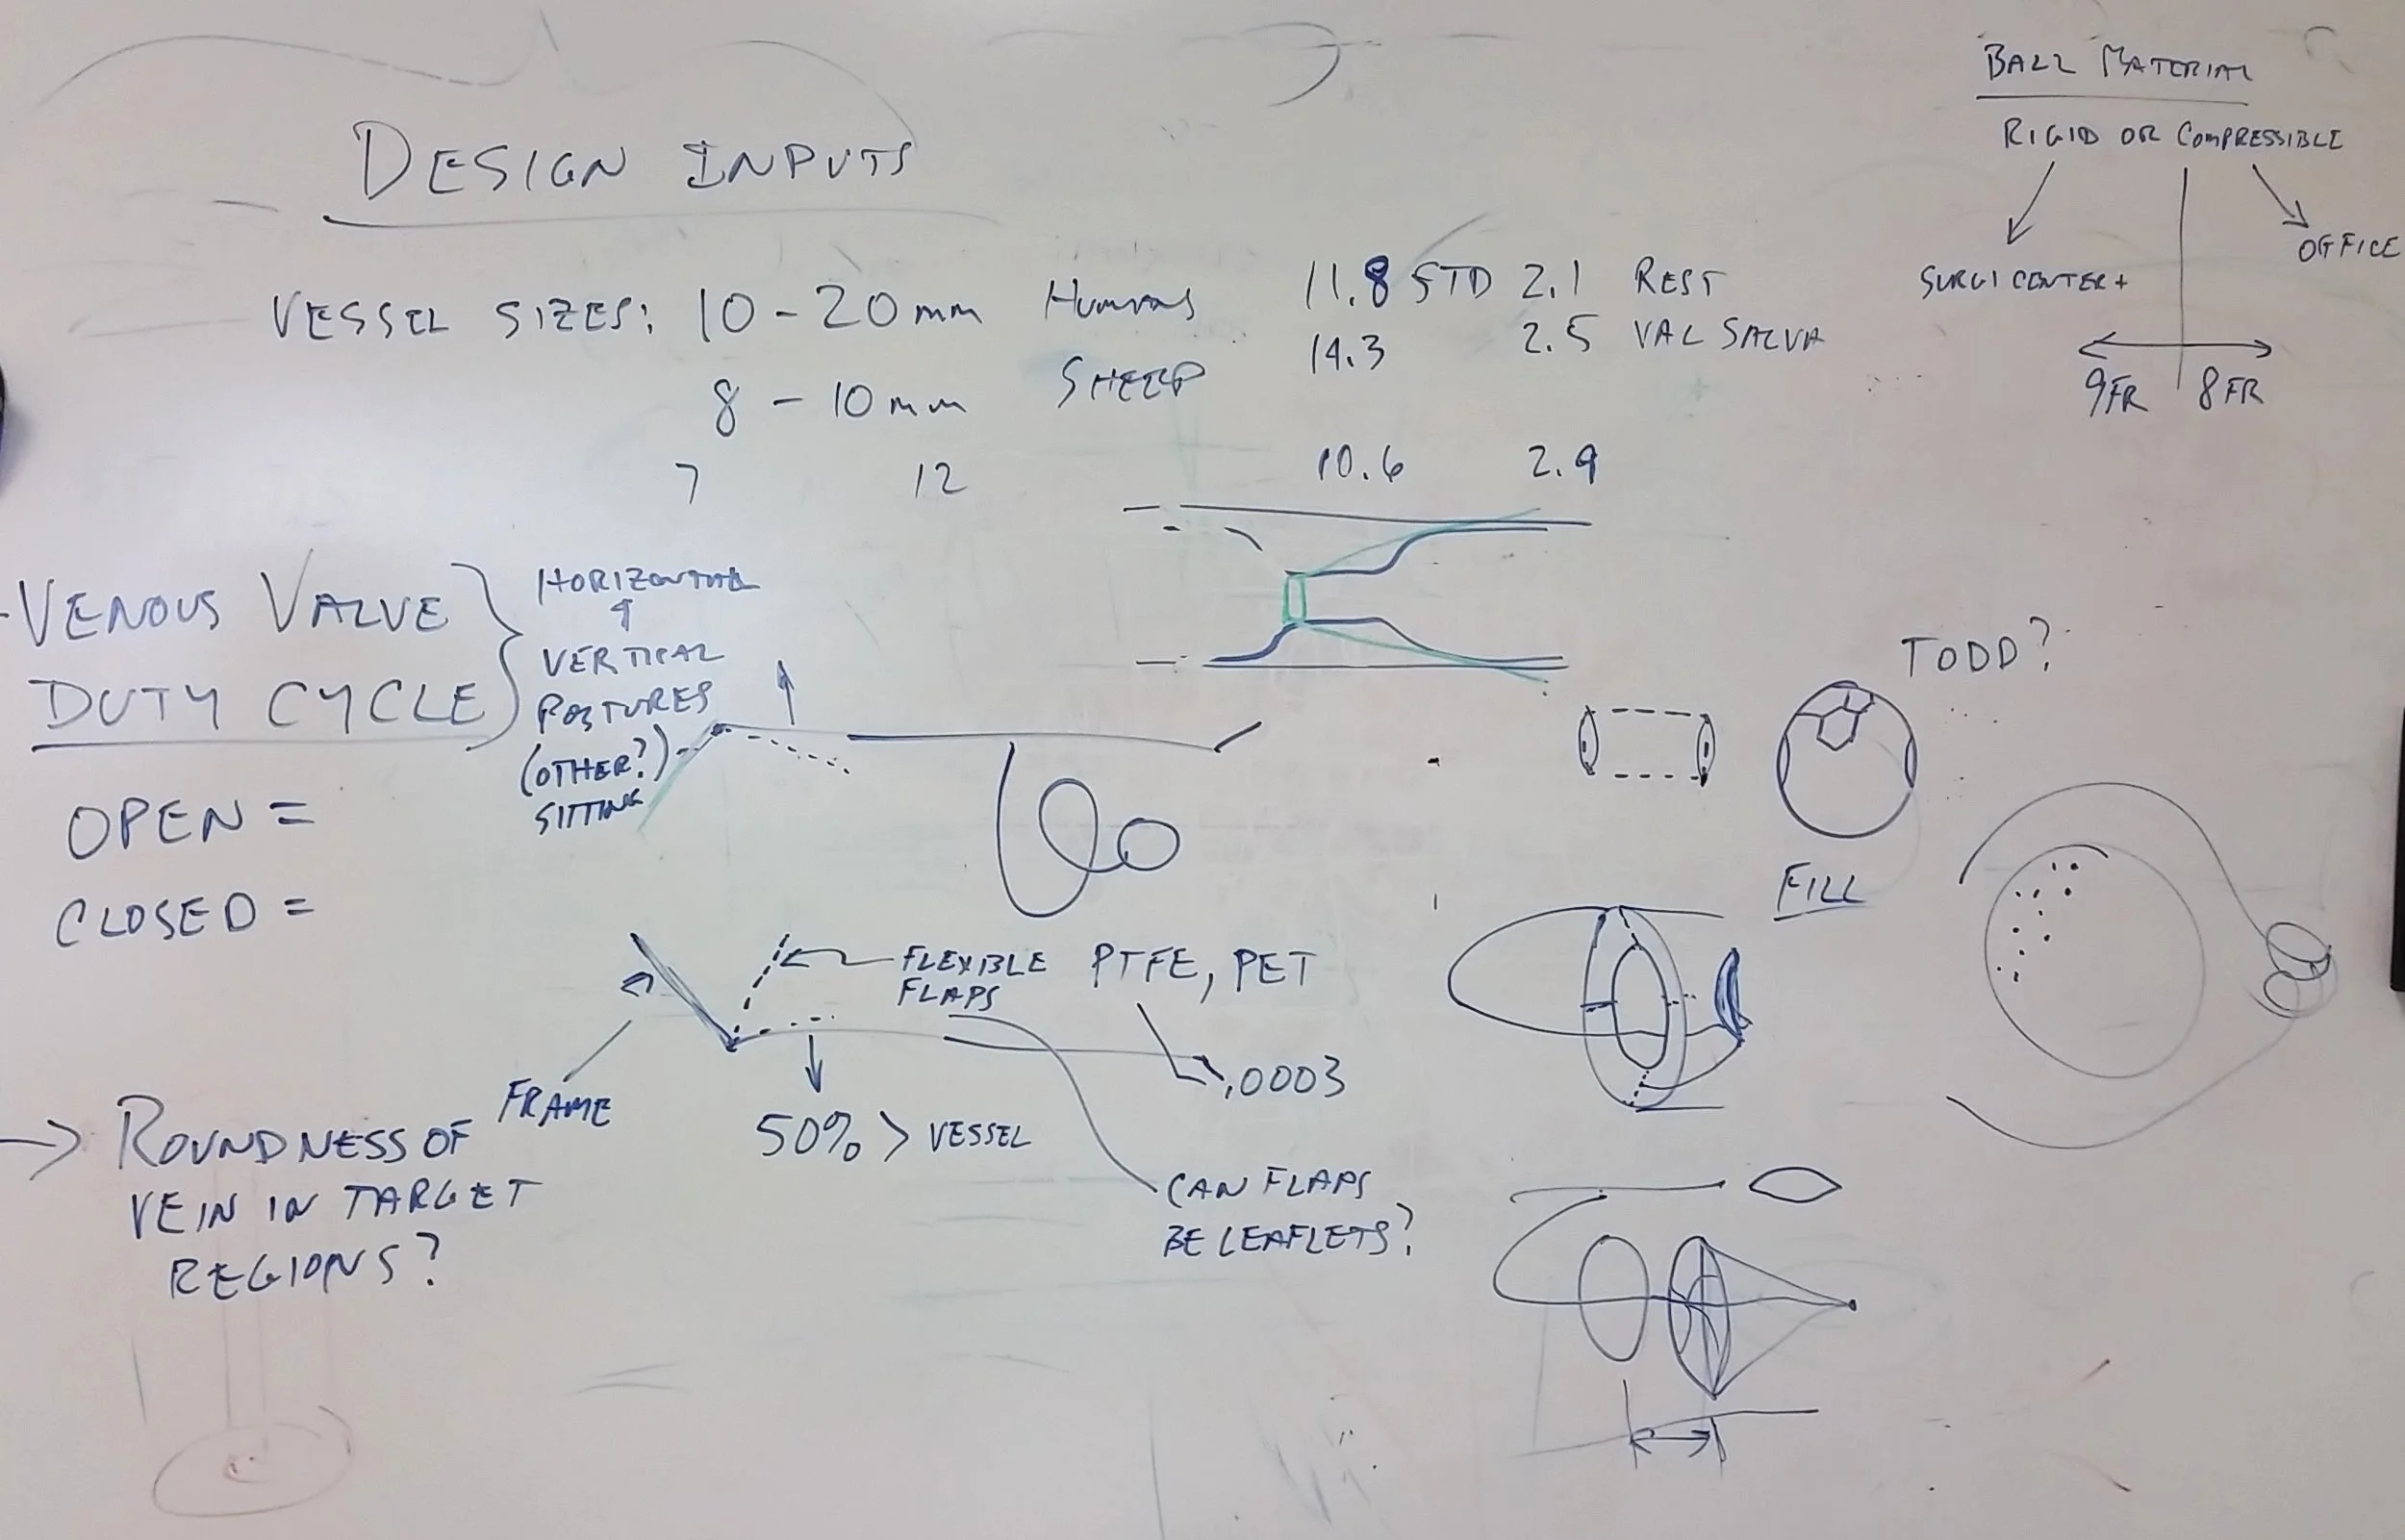 DESIGN INPUTS
VESSEL SIZES: 10-20mm HUMANS 11.8 STD 2.1 REST
14.3 2.5 VALSALVA
8 - 10mm SHEEP
7 12 10.6 2.9
BALL MATERIAL
RIGID OR COMPRESSIBLE
SURGICENTER+
OFFICE
9FR 8FR
VENOUS VALVE
DUTY CYCLE
HORIZONTAL
VERTICAL
POSTURES
(OTHER?)
SITTING
OPEN =
CLOSED =
TODD?
FILL
FLEXIBLE
FLAPS
PTFE, PET
.0003
FRAME
50% > VESSEL
CAN FLAPS
BE LEAFLETS?
→ ROUNDNESS OF
VEIN IN TARGET
REGIONS?